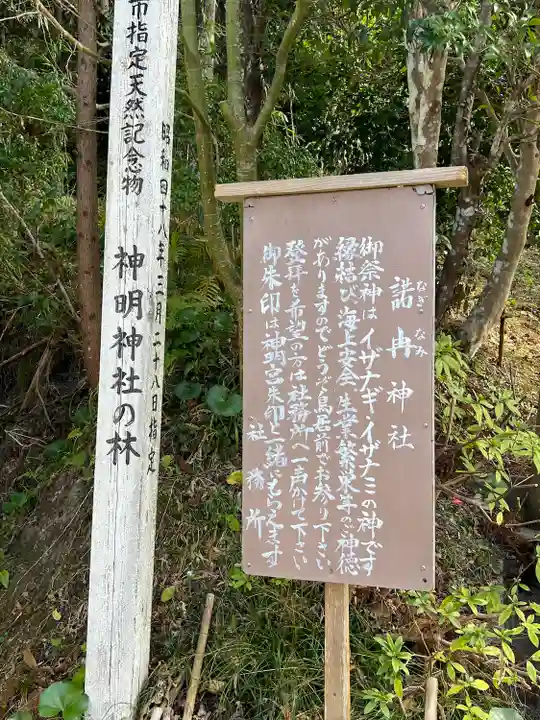 市指定天然記念物
神明神社の林
昭和四十八年三月二十八日指定
諾冉神社
なぎ なみ
御祭神はイザナギ・イザナミの神です
縁結び海上安全、生業繁栄等のご神徳
がありますのでどうぞ鳥居前でお参り下さい
登拝を希望の方は社務所へ声かけて下さい
御朱印は神明宮朱印と一緒にもらえます
社務所